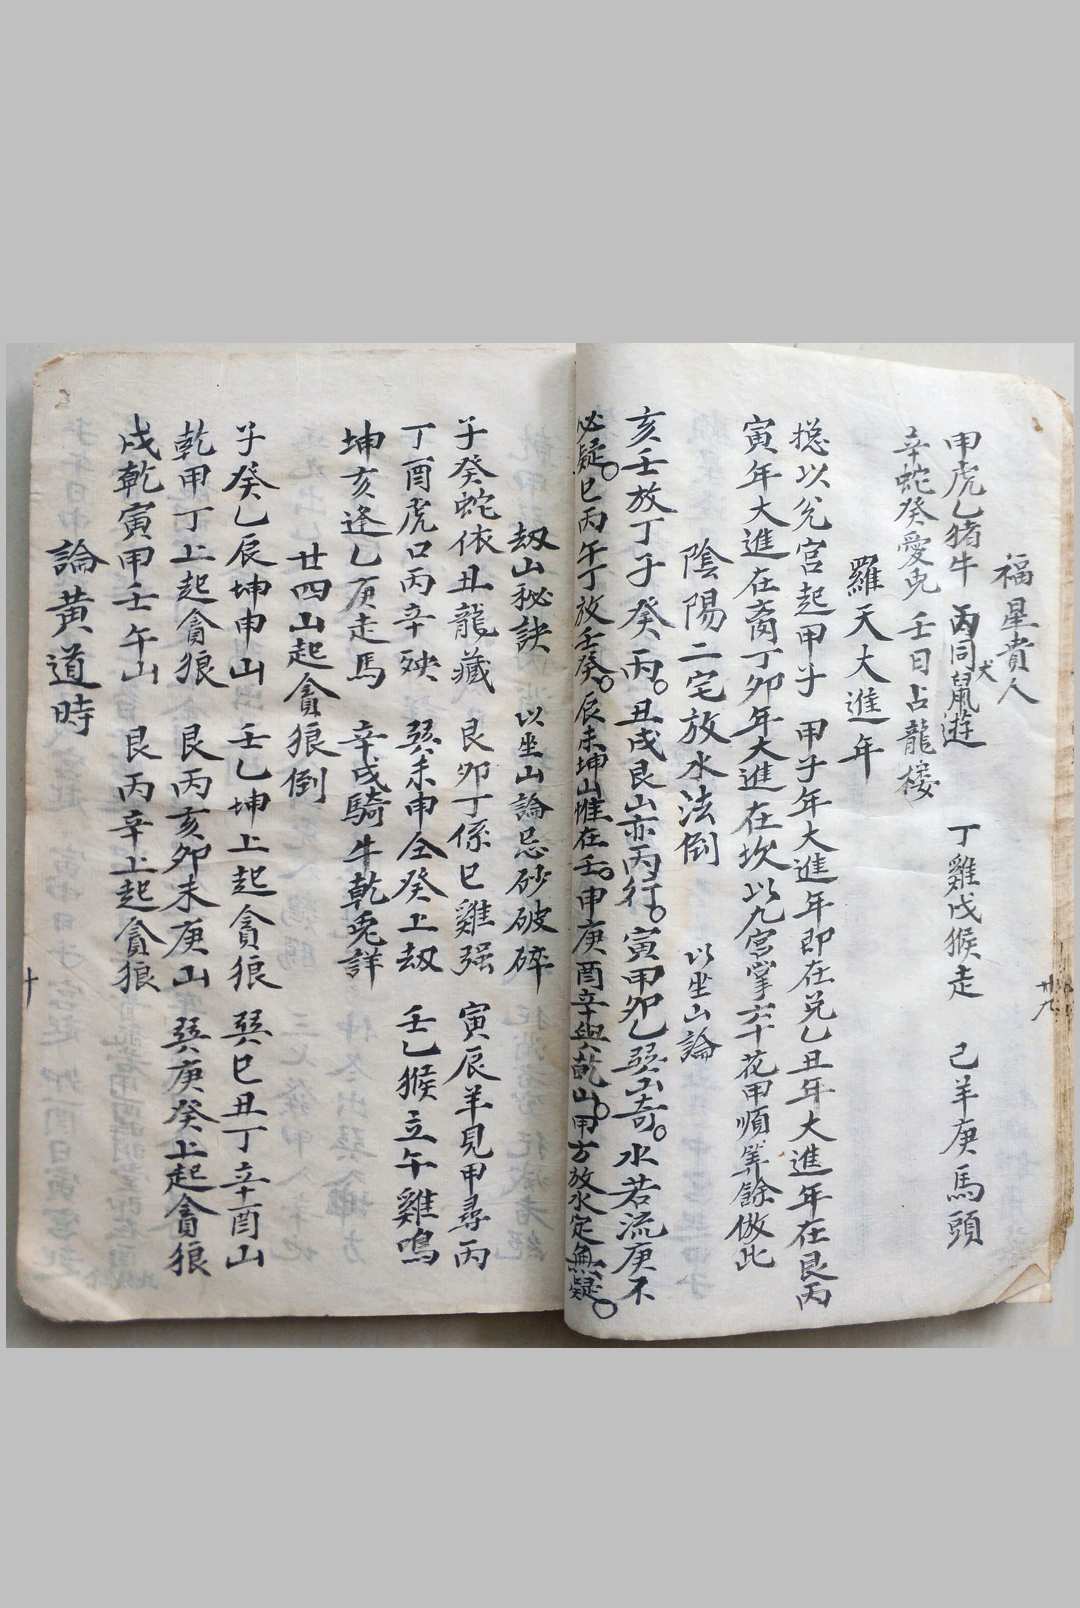 福星貴人
甲虎乙猪牛 丙同犬鼠遊 丁雞戊猴走 己羊庚馬頭
辛蛇癸愛兎 壬日占龍楼
羅天大進年
捴以兊宮起甲子 甲子年大進年即在兊乙丑年大進年在艮丙
寅年大進在离丁卯年大進在坎以九宮掌六十花甲順筭餘倣此
陰陽二宅放水法倒 以坐山論
亥壬放丁子癸丙。丑戌艮山亦丙行。寅甲卯乙巽山奇。水若流庚不
必疑。巳丙午丁放壬癸。辰未坤山惟在壬。申庚酉辛與乾山。甲方放水定無疑。
刼山秘訣 以坐山論忌砂破碎
子癸蛇依丑龍藏 艮卯丁係巳雞强 寅辰羊見甲尋丙
丁酉虎口丙辛殃 巽未申仝癸上刼 壬乙猴立午雞鳴
坤亥逢乙庚走馬 辛戌騎牛乾兎詳
廿四山起貪狼倒
子癸乙辰坤申山 壬乙坤上起貪狼 巽巳丑丁辛酉山
乾甲丁上起貪狼 艮丙亥卯未庚山 巽庚癸上起貪狼
戌乾寅甲壬午山 艮丙辛上起貪狼
論黄道時
十